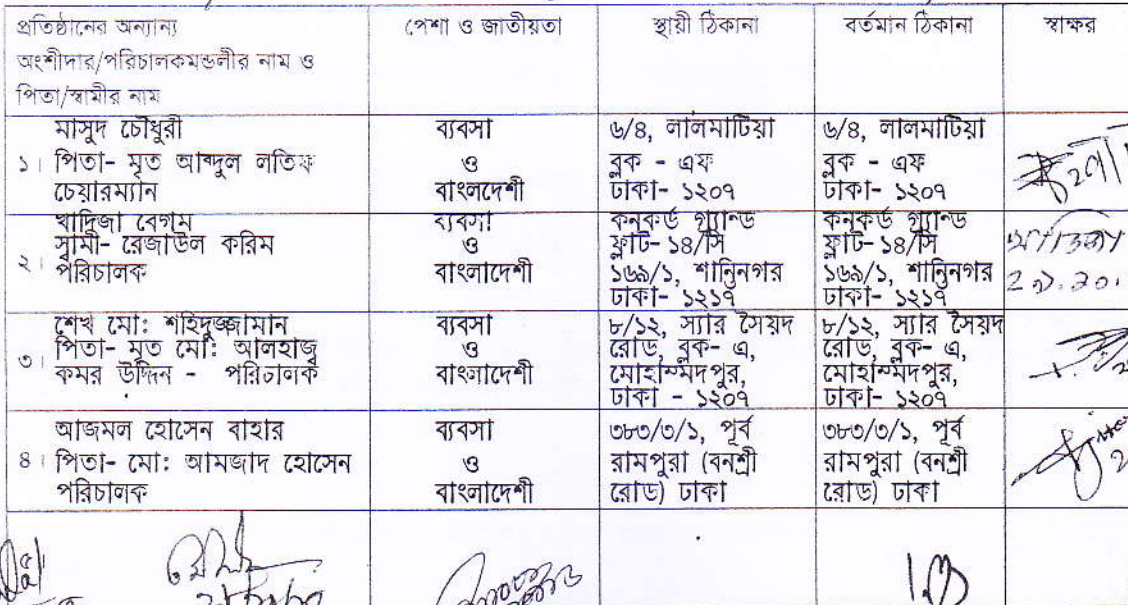 প্রতিষ্ঠানের অন্যান্য অংশীদার/পরিচালকমন্ডলীর নাম ও পিতা/স্বামীর নাম
পেশা ও জাতীয়তা
স্থায়ী ঠিকানা
বর্তমান ঠিকানা
স্বাক্ষর
১।
মাসুদ চৌধুরী
পিতা- মৃত আব্দুল লতিফ
চেয়ারম্যান
ব্যবসা
ও
বাংলদেশী
৬/৪, লালমাটিয়া
ব্লক - এফ
ঢাকা- ১২০৭
৬/৪, লালমাটিয়া
ব্লক - এফ
ঢাকা- ১২০৭
২।
খাদিজা বেগম
স্বামী- রেজাউল করিম
পরিচালক
ব্যবসা
ও
বাংলাদেশী
কনকর্ড গ্র্যান্ড
ফ্লাট- ১৪/সি
১৬৯/১, শান্তিনগর
ঢাকা- ১২১৭
কনকর্ড গ্র্যান্ড
ফ্লাট- ১৪/সি
১৬৯/১, শান্তিনগর
ঢাকা- ১২১৭
৩।
শেখ মো: শহিদুজ্জামান
পিতা- মৃত মো: আলহাজ্ব
কমর উদ্দিন - পরিচালক
ব্যবসা
ও
বাংলাদেশী
৮/১২, স্যার সৈয়দ
রোড, ব্লক- এ,
মোহাম্মদপুর,
ঢাকা - ১২০৭
৮/১২, স্যার সৈয়দ
রোড, ব্লক- এ,
মোহাম্মদপুর,
ঢাকা- ১২০৭
৪।
আজমল হোসেন বাহার
পিতা- মো: আমজাদ হোসেন
পরিচালক
ব্যবসা
ও
বাংলাদেশী
৩৮৩/৩/১, পূর্ব
রামপুরা (বনশ্রী
রোড) ঢাকা
৩৮৩/৩/১, পূর্ব
রামপুরা (বনশ্রী
রোড) ঢাকা